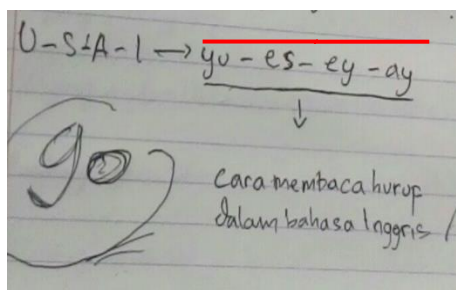 U-S-A-I → yu-es-ey-ay
90
cara membaca hurup
dalam bahasa Inggris